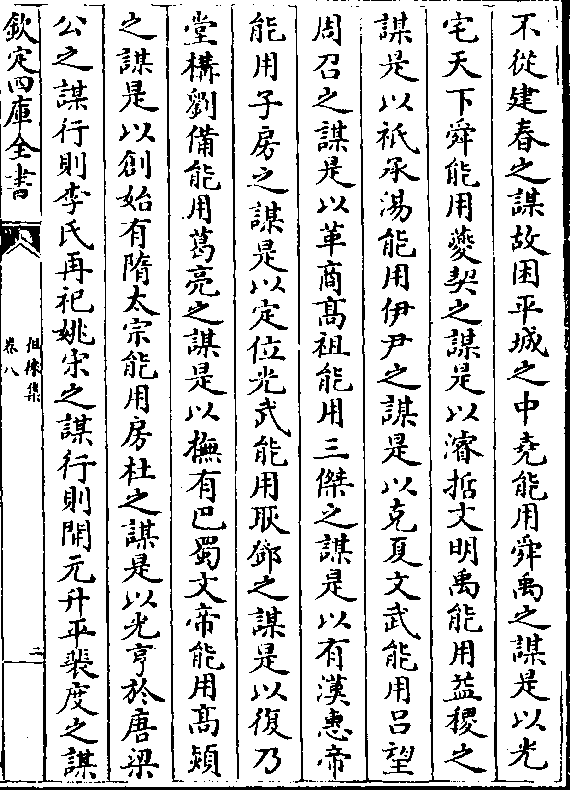 不從建春之謀故困平城之中堯能用舜禹之謀是以光
宅天下舜能用夔契之謀是以濬哲文明禹能用益稷之
謀是以祇承湯能用伊尹之謀是以克夏文武能用吕望
周召之謀是以革商髙祖能用三傑之謀是以有漢惠帝
能用子房之謀是以定位光武能用耿鄧之謀是以復乃
堂構劉備能用葛亮之謀是以撫有巴蜀文帝能用髙熲
之謀是以創始有隋太宗能用房杜之謀是以光亨於唐梁
公之謀行則李氏再祀姚宋之謀行則開元升平裴度之謀
欽定四庫全書
徂徕集
卷八
二